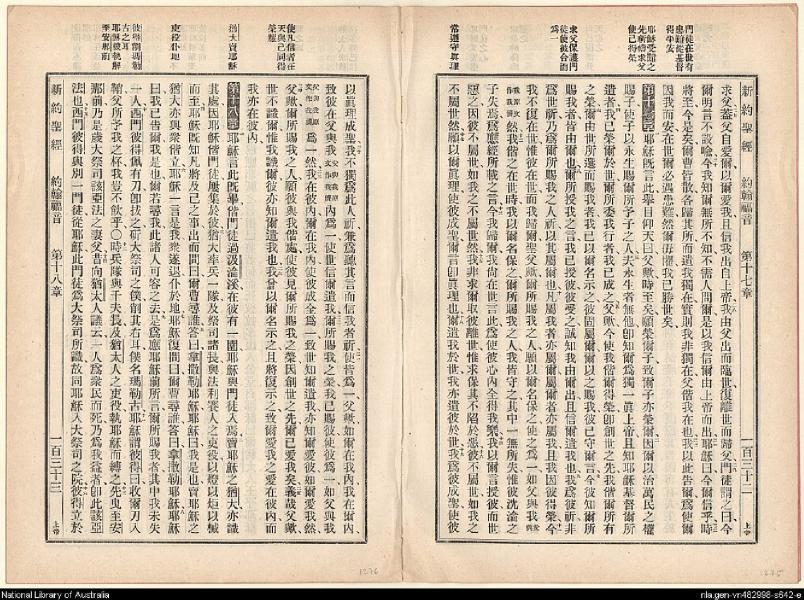 門徒在世有
患難從基督
得平安
耶穌受難之
先祈禱求父
使己得榮
求父保護門
徒使彼合而
為一
常遵守眞理
新約聖經 約翰福音 第十七章 一百三十二 上帝
求父蓋父自愛爾以爾愛我且信我出自上帝我由父出而臨世復離世而歸父門徒謂之曰今
爾明言不設喻今我知爾無所不知不需人問爾是以我信爾由上帝而出耶穌曰今爾信乎時
將至今是矣爾曹皆散各歸其所而遺我獨在實則我非獨在父偕我在也我以此告爾使爾
因我而安在世爾必遇患難然爾毋懼我已勝世矣
第十七章耶穌旣言此舉目仰天曰父歟時至矣願榮爾子致爾子亦榮爾因爾以治萬民之權
賜子使子以永生賜爾所予子之人夫永生者無他卽知爾爲獨一眞上帝且知耶穌基督爾所
遣者我已榮爾於世爾所委我行者我已成之父歟今使我偕爾得榮卽創世之先我偕爾所有
之榮爾由世所選而賜我者我已以爾名示之彼固屬爾爾以之賜我彼已守爾言今彼知爾所
賜我者皆由爾也爾所授我之言我已授彼彼受之誠知我由爾出且信爾遣我也我爲彼祈非
爲世祈乃爲爾所賜我之人祈以其屬爾也凡屬我者亦屬爾屬爾者亦屬我且我因彼得榮今
我不復在世惟彼在世而我歸爾聖父歟爾所賜我之人願以爾名保之使之爲一如父與我
然我偕之在世時我以爾名保之爾所賜我之人我皆守之其中一無所失惟彼沈淪之
子失焉爲應經所載之言今我歸爾我尙在世言此爲使彼心內全得我樂我以爾言授彼而世
惡之因彼不屬世如我之不屬世然我非求爾取彼離世惟求保其不陷於惡彼不屬世如我之
不屬世然願以爾眞理使彼成聖爾言卽眞理也爾遣我於世我亦遣彼於世我爲彼成聖使彼
使凡信者在
天與己同得
榮耀
猶大賣耶穌
吏役仆地
彼得削瑪勒
古之耳
耶穌被執解
至安那前
以眞理成聖我不獨爲此人祈兼爲聽其言而信我者祈使皆爲一父歟如爾在我內我在爾內
致彼在父與我內爲一使世信爾遣我爾所賜我之榮我已賜彼使彼爲一如父與我
爲一然我在彼內爾在我內使彼成全爲一致世知爾遣我亦知爾愛彼如爾愛我然
父歟爾所賜我之人願彼與我偕處使彼見爾所賜我之榮因創世之先爾已愛我矣義哉父歟
世不識爾惟我識爾彼亦知爾遣我也我曾以爾名示之且將復示之致爾愛我之愛在彼內而
我亦在彼內
第十八章耶穌言此旣畢偕門徒過汲淪溪在彼有一園耶穌與門徒入焉賣耶穌之猶大亦識
其處因耶穌偕門徒屢集於彼猶大率兵一隊及祭司諸長與法利賽人之吏役以燈以炬以械
而至耶穌旣知凡將及己之事出而問曰爾曹尋誰答曰拿撒勒耶穌耶穌曰我是也賣耶穌之
猶大亦與衆偕立耶穌一言是我衆遂退仆於地耶穌復問曰爾曹尋誰答曰拿撒勒耶穌耶穌
曰我已告爾曰我是也爾若尋我此諸人可容之去是爲應耶穌前所言爾所賜我者其中我未失
一人西門彼得佩有刀卽拔之斫大祭司之僕削其右耳僕名瑪勒古耶穌謂彼得曰收爾刀入
鞘父所予我之杯我豈不飲乎○時兵隊與千夫長及猶太人之吏役執耶穌而縛之先曳至安
那前乃是歲大祭司該亞法之妻父昔向猶太人議云一人爲衆民而死乃爲我益者卽此該亞
法也西門彼得與別一門徒從耶穌此門徒爲大祭司所識故同耶穌入大祭司之院彼得立於
新約聖經 約翰福音 第十八章 一百三十三 上帝
1276
1275
National Library of Australia
nla.gen-vn482998-s642-e